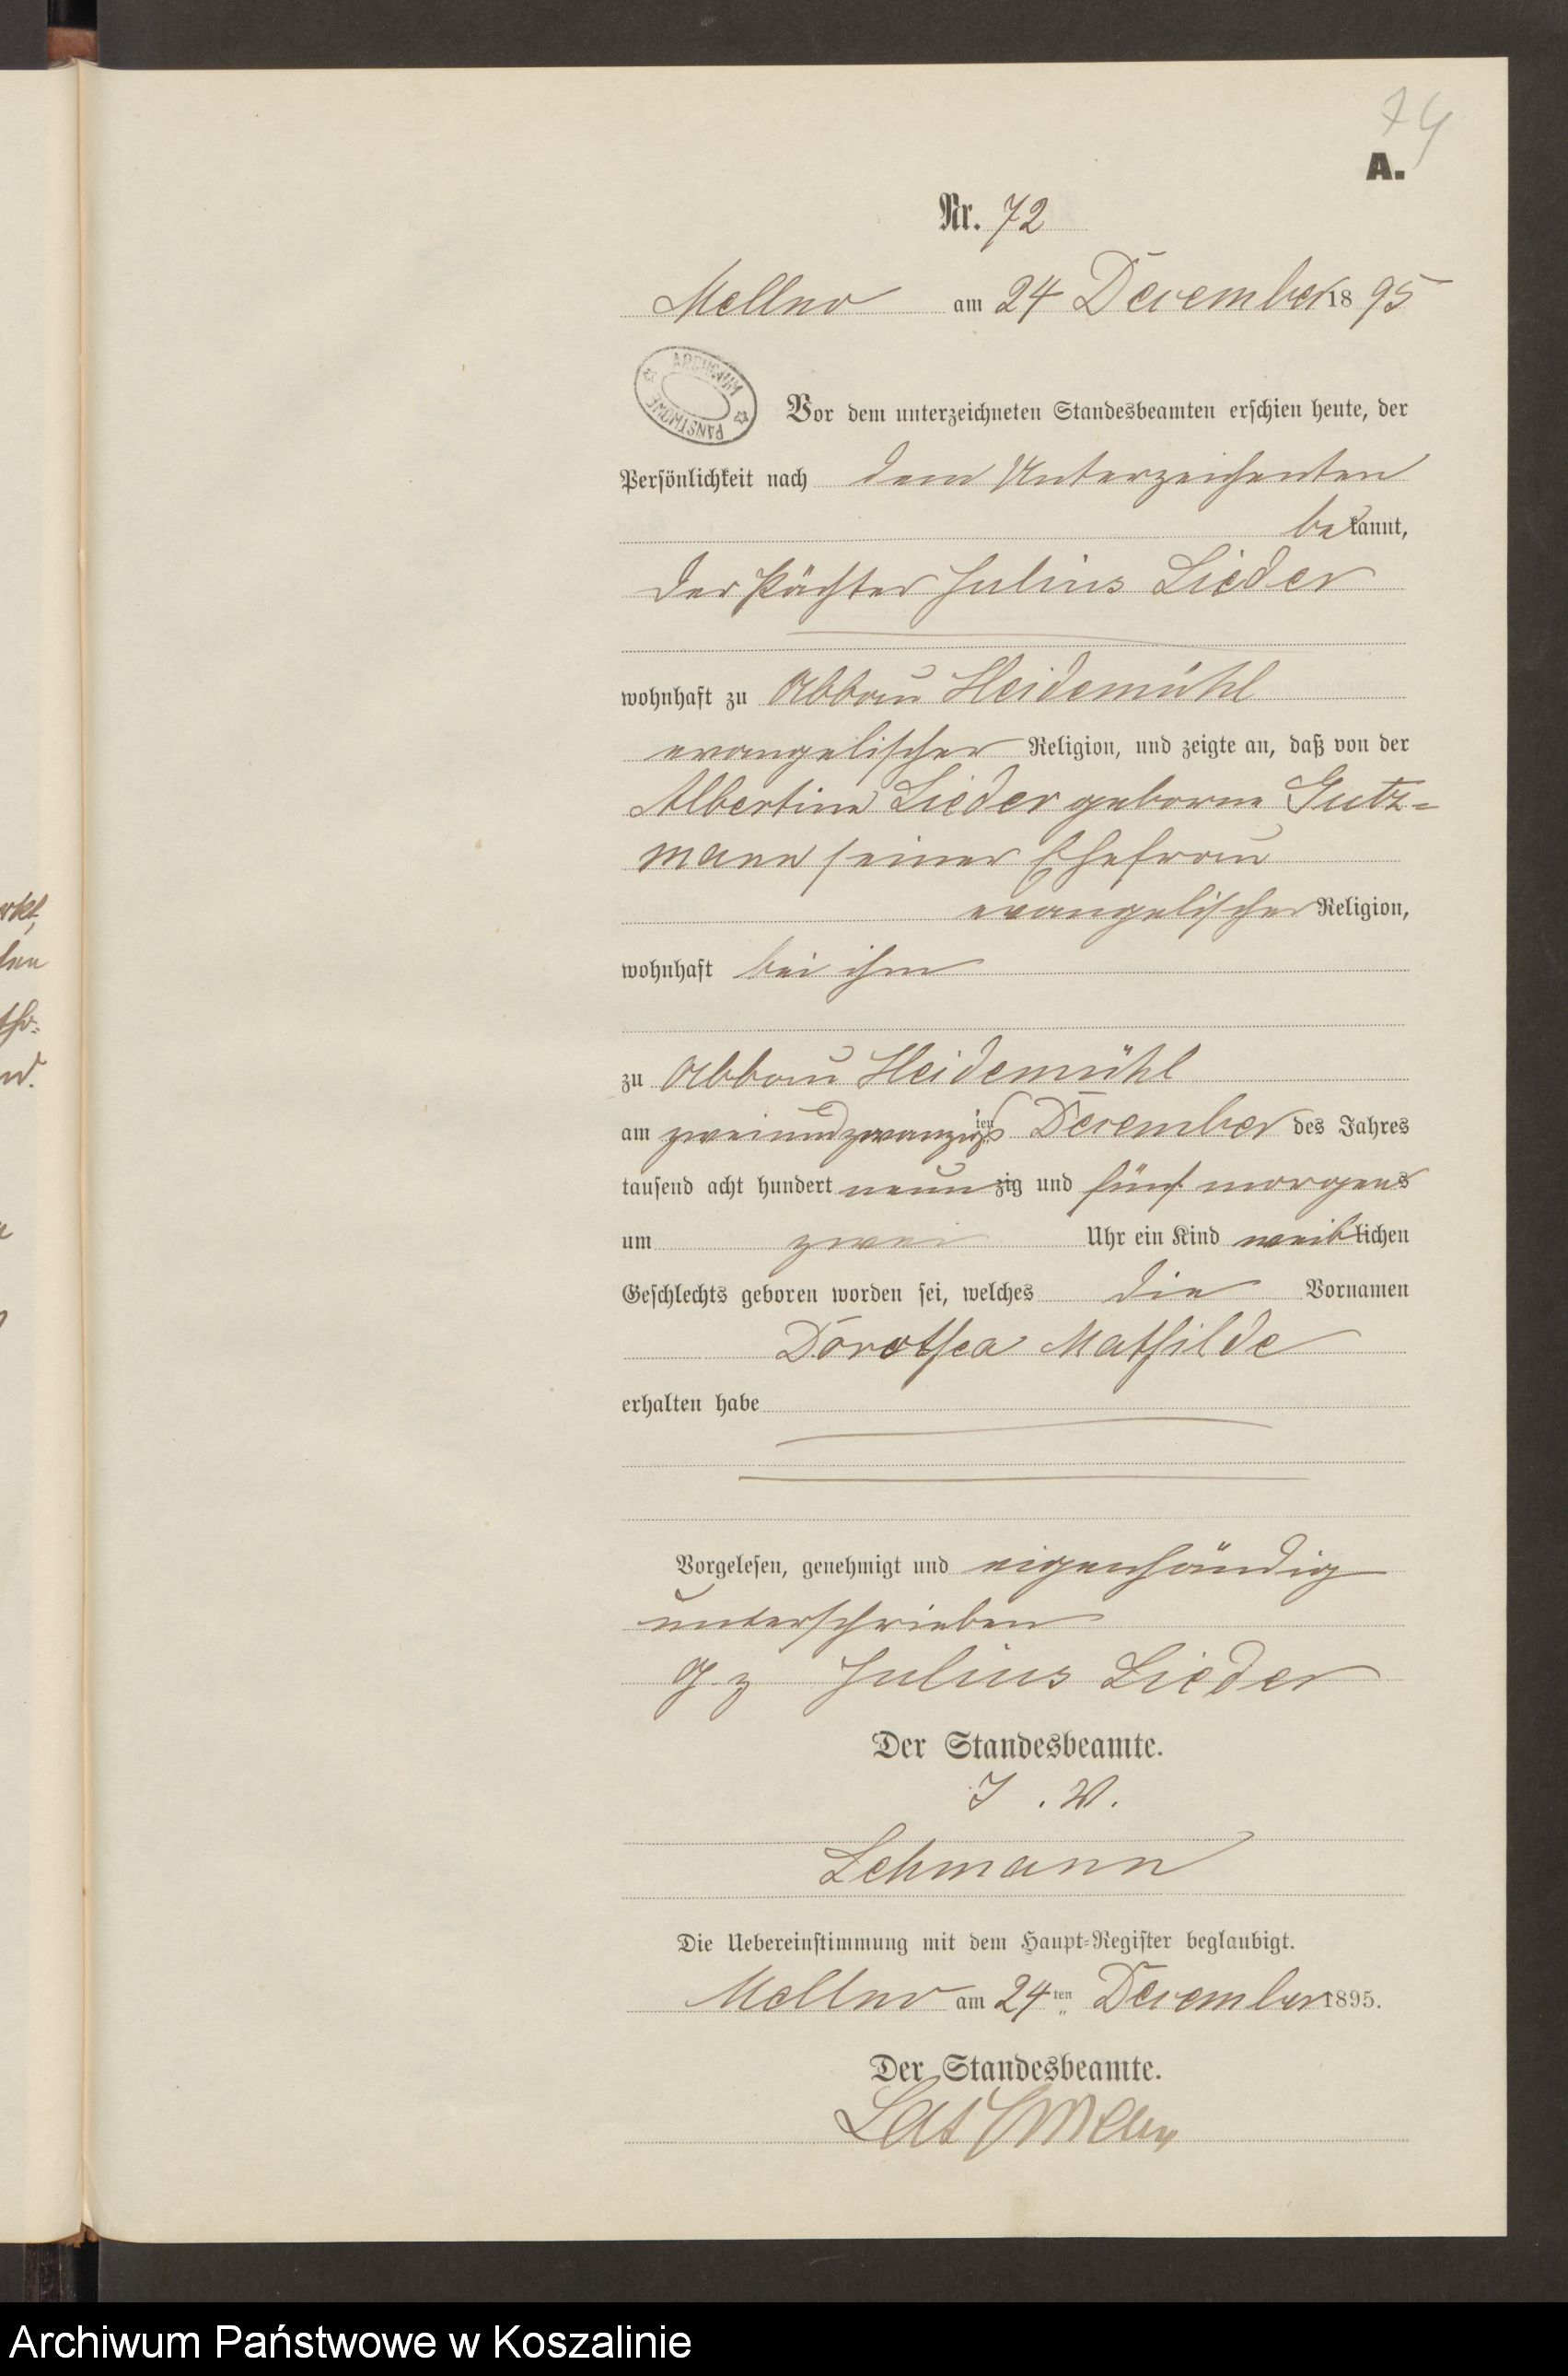 74
A.
Nr. 72
Mellno am 24 December 1895
ARCHIWUM PAŃSTWOWE
Vor dem unterzeichneten Standesbeamten erschien heute, der
Persönlichkeit nach dem Unterzeichenten
bekannt,
der Pächter Julius Lieder
wohnhaft zu Abbau Heidemühl
evangelischer Religion, und zeigte an, daß von der
Albertine Lieder geborne Gutz-
mann seiner Ehefrau
evangelischer Religion,
wohnhaft bei ihm
zu Abbau Heidemühl
am zweiundzwanzigsten December des Jahres
tausend acht hundert neunzig und fünf morgens
um zwei Uhr ein Kind weiblichen
Geschlechts geboren worden sei, welches die Vornamen
Dorothea Mathilde
erhalten habe
Vorgelesen, genehmigt und eigenhändig
unterschrieben
gz Julius Lieder
Der Standesbeamte.
J. V.
Lehmann
Die Uebereinstimmung mit dem Haupt-Register beglaubigt.
Mellno am 24ten December 1895.
Der Standesbeamte.
erkt,
den
Archiwum Państwowe w Koszalinie